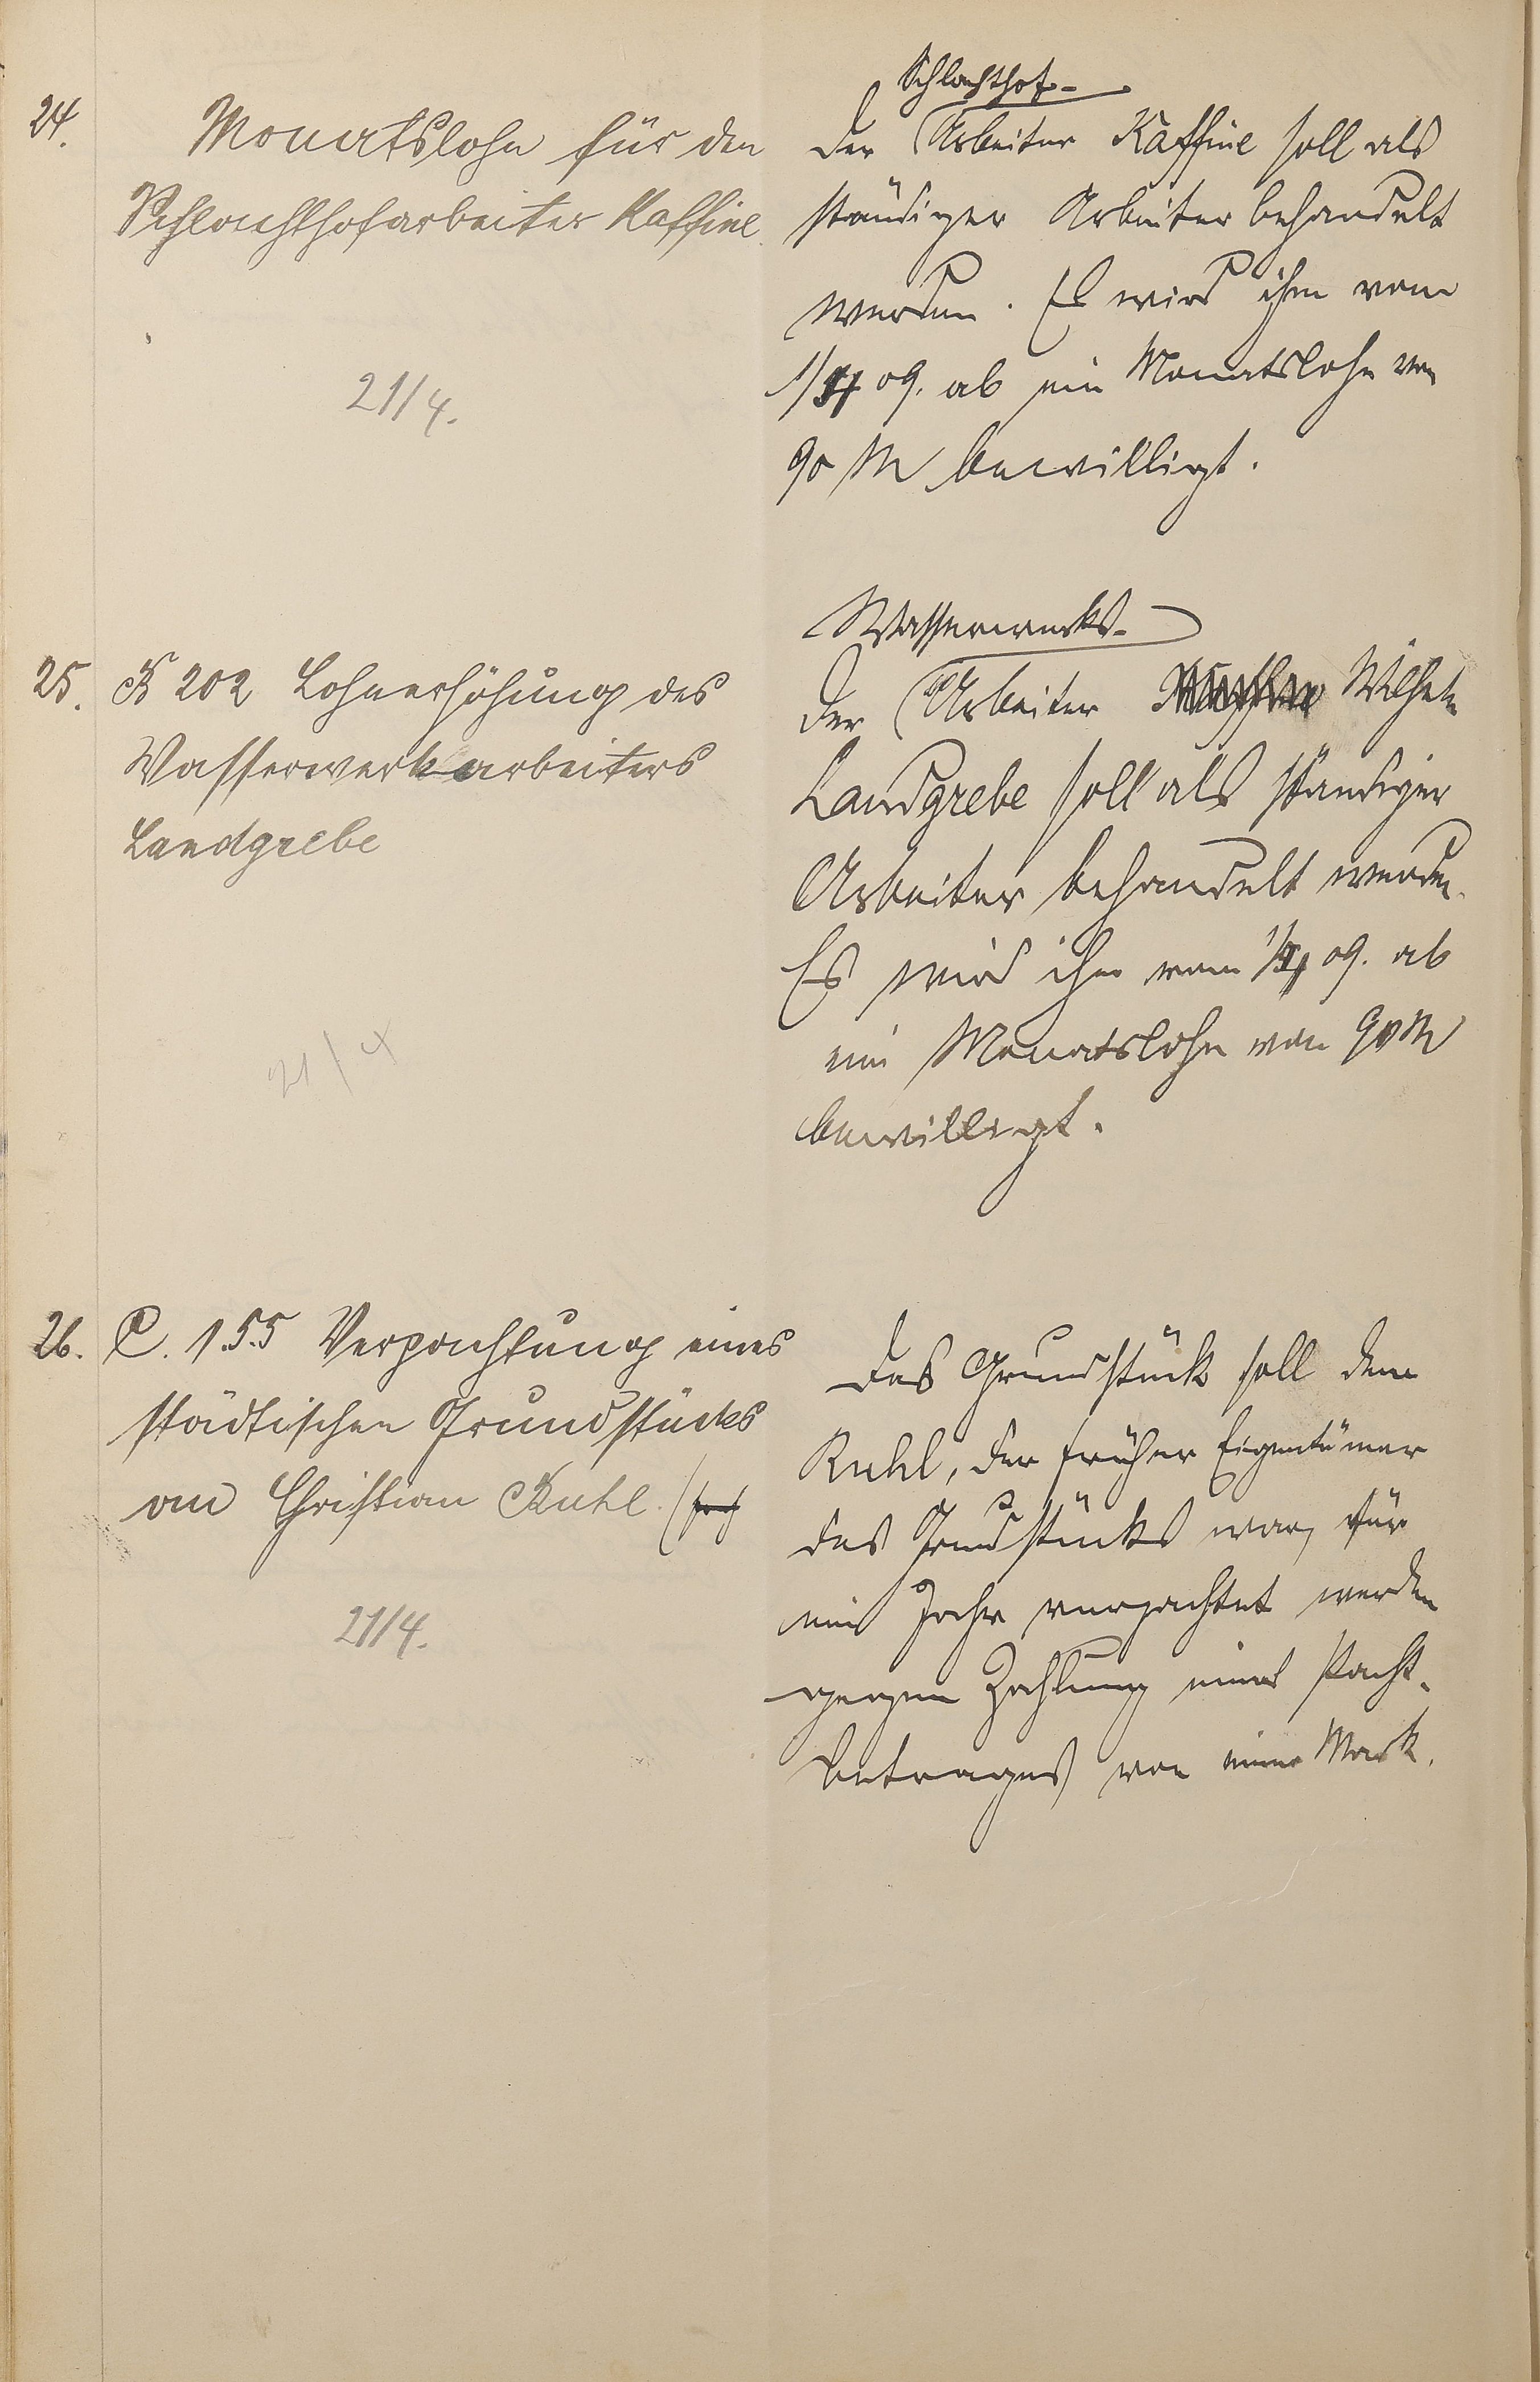 24.
Monatslohn für den
Schlachthofarbeiter Kaffine.
21/4.
Schlachthof-
Der Arbeiter Kaffine soll als
ständiger Arbeiter behandelt
werden. Es wird ihm vom
1/4 09. ab ein Monatslohn von
90 M bewilligt.
25.
K 202 Lohnerhöhung des
Wasserwerkarbeiters
Landgrebe
21/4
Wasserwerks-
Der Arbeiter Wilhelm
Landgrebe soll als ständiger
Arbeiter behandelt werden.
Es wird ihm vom 1/4 09. ab
ein Monatslohn von 90 M
bewilligt.
26.
C. 155 Verpachtung eines
städtischen Grundstücks
an Christian Ruhl.
21/4.
Das Grundstück soll dem
Ruhl, der früher Eigentümer
des Grundstücks war, für
ein Jahr verpachtet werden
gegen Zahlung eines Pacht-
betrages von einer Mark.